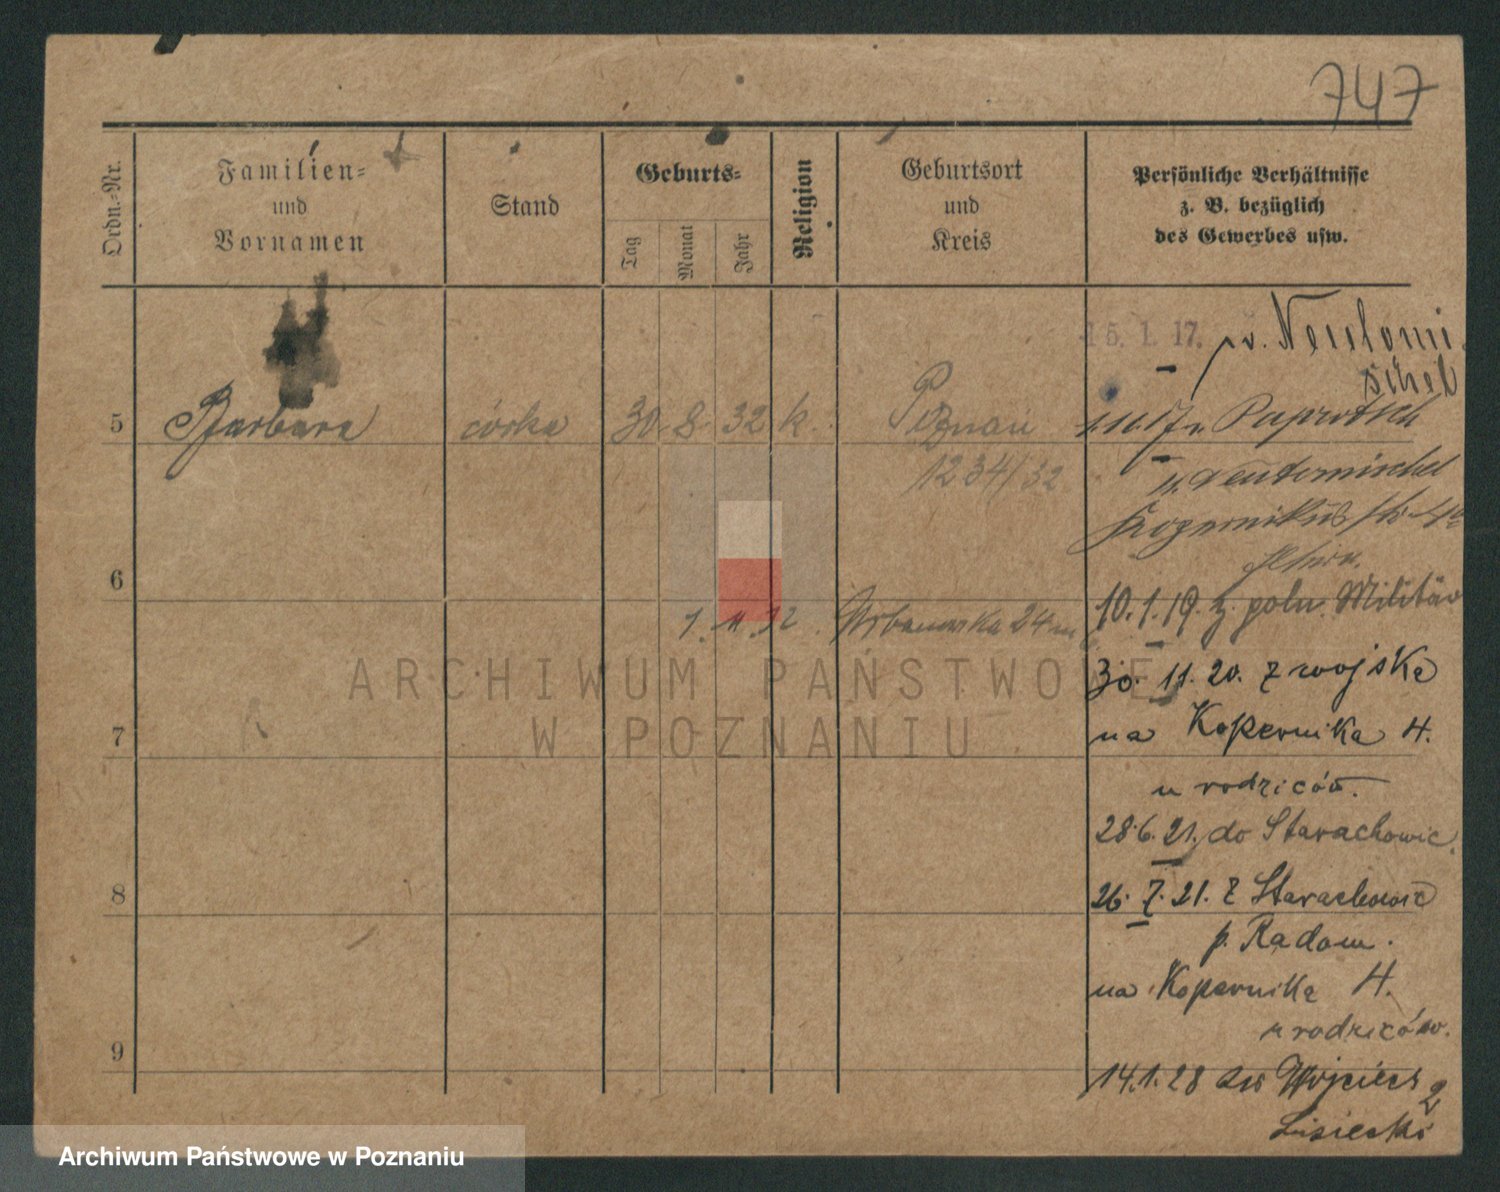 747
Ordn.-Nr.
Familien-
und
Vornamen
Stand
Geburts-
Tag
Monat
Jahr
Religion
Geburtsort
und
Kreis
Persönliche Verhältnisse
z. B. bezüglich
des Gewerbes usw.
15. 1. 17. v. Neutomi
schel
5 Barbara córka 30. 8. 32 k. Poznań
1234/32
Paprotsch
Neutomischel
6
10. 1. 19. z. poln. Militär
1. 11. 32. Urbanowska 24
30. 11. 20. z wojska
7
na Kopernika 4.
u rodziców.
28.6.21. do Starachowic.
8
26. 7. 21. z Starachowic
p. Radom.
na Kopernika 4.
u rodziców.
9
14.1.28 Wojciech
Lisiecki
ARCHIWUM PAŃSTWOWE
W POZNANIU
Archiwum Państwowe w Poznaniu